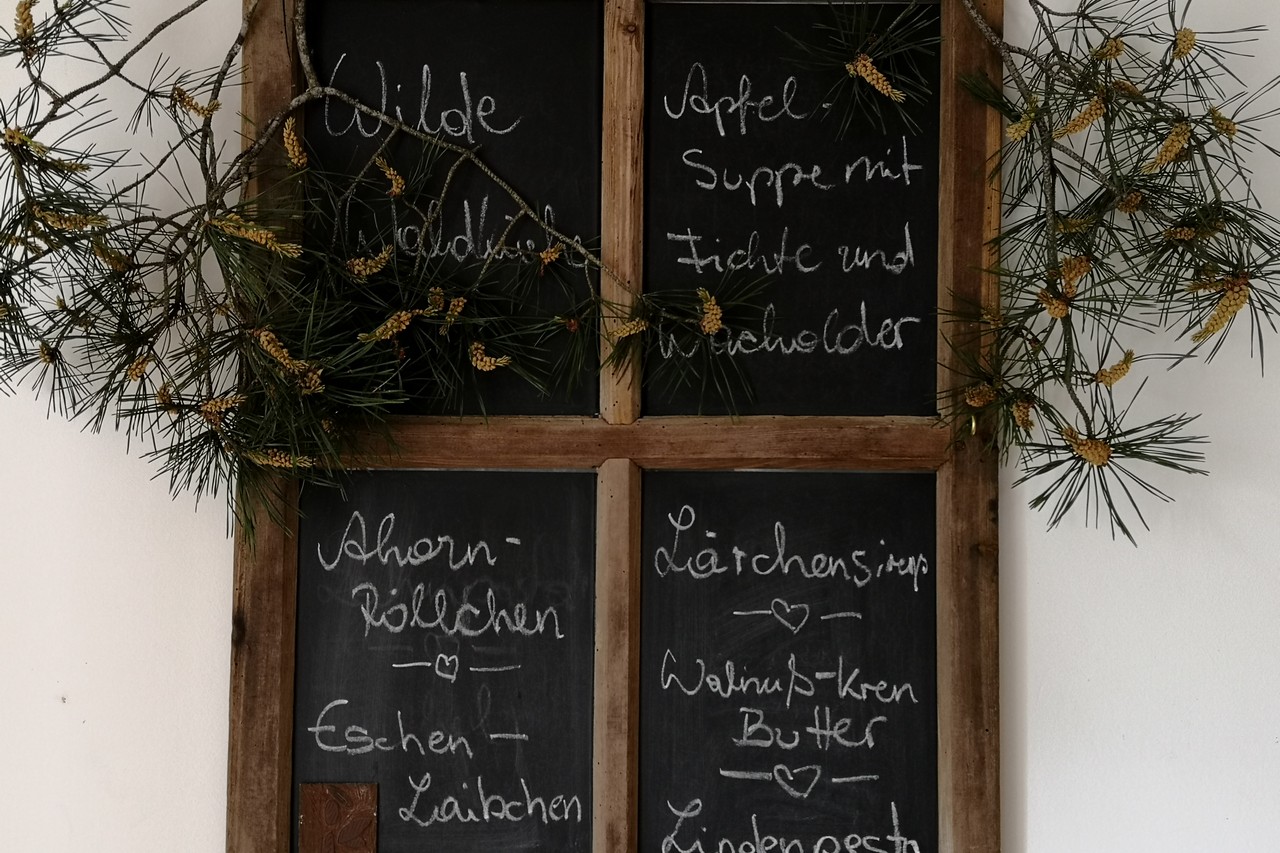 Wilde
Waldküche
Apfel-
Suppe mit
Fichte und
Wacholder
Ahorn-
Röllchen
Eschen-
Laibchen
Lärchensirup
Walnuß-Kren
Butter
Lindenpesto